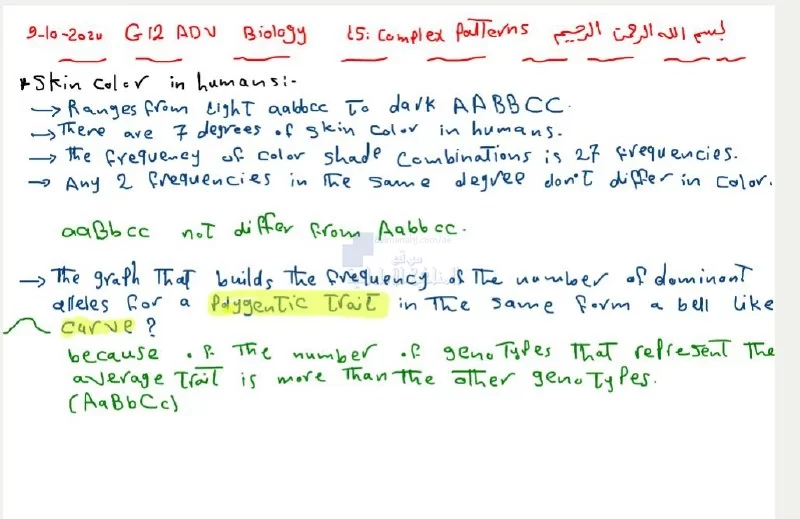 9-10-2020 G12 ADV Biology L5: Complex Patterns بسم الله الرحمن الرحيم
* Skin color in humans:-
→ Ranges from light aabbcc To dark AABBCC.
→ There are 7 degrees of skin color in humans.
→ The frequency of color shade Combinations is 27 frequencies.
→ Any 2 frequencies in The same degree don't differ in color.
aaBbcc not differ from Aabbcc.
almanahj.com/ae
موقع
المناهج الإماراتية
→ The graph That builds The frequency of The number of dominant
alleles for a Polygentic Trait in The same form a bell like
curve ?
because of The number of genotypes That represent The
average Trait is more Than The other genotypes.
(AaBbCc)